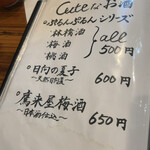 Cuteなお酒
◎ぷるんぷるんシリーズ
林檎酒
梅酒
桃酒
all
500円
◎日向の夏子
～天然的果～
600円
◎鷹来屋梅酒
～日本酒仕込～
650円